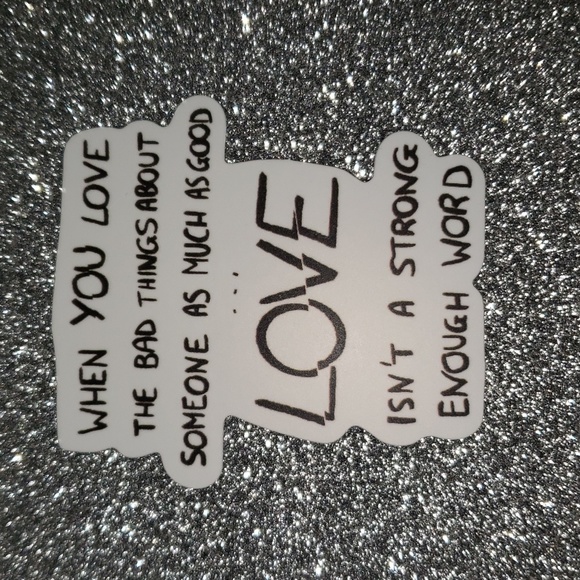 WHEN YOU LOVE
THE BAD THINGS ABOUT
SOMEONE AS MUCH AS GOOD
...
LOVE
ISN'T A STRONG
ENOUGH WORD